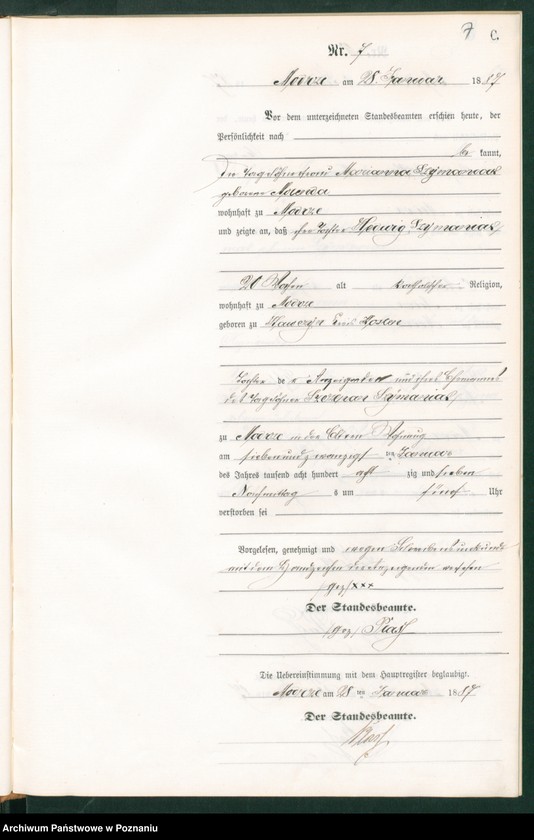 7 C.
Nr. 7
am 28. Januar 1887
Vor dem unterzeichneten Standesbeamten erschien heute, der
Persönlichkeit nach
be kannt,
die Tagelöhnerfrau Marianna Szymaniak
geborene
wohnhaft zu
und zeigte an, daß ihre Tochter Hedwig Szymaniak,
20 Wochen alt katholischer Religion,
wohnhaft zu
geboren zu Kreis Kosten
Tochter der Anzeigenden und ihres Ehemannes
des Tagelöhner Szymaniak,
zu in der Eltern Wohnung
am siebenundzwanzigsten Januar
des Jahres tausend acht hundert acht zig und sieben
Nachmittags um fünf Uhr
verstorben sei
Vorgelesen, genehmigt und wegen Schreibensunkunde
mit dem Handzeichen der Anzeigenden versehen
/gez/ xxx
Der Standesbeamte.
/gez/
Die Uebereinstimmung mit dem Hauptregister beglaubigt.
am 28 ten Januar 1887
Der Standesbeamte.
Archiwum Państwowe w Poznaniu